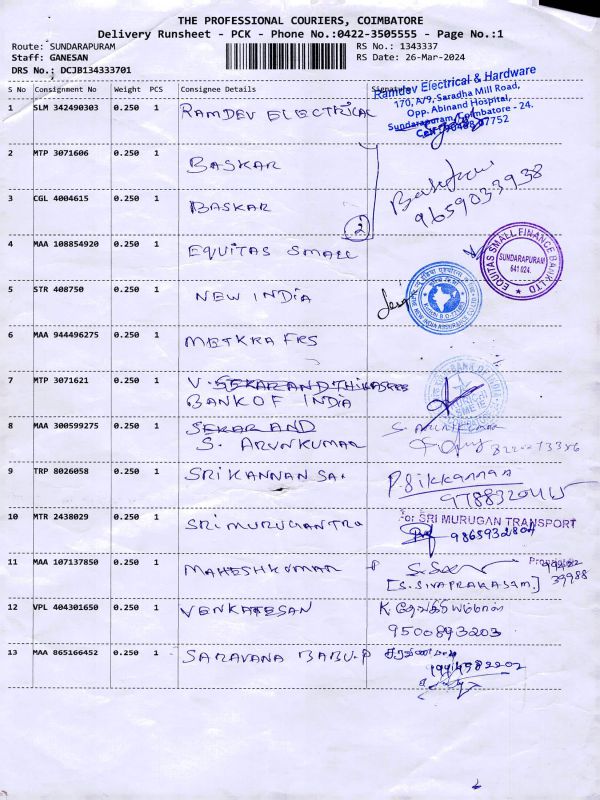 THE PROFESSIONAL COURIERS, COIMBATORE
Delivery Runsheet - PCK - Phone No.:0422-3505555 - Page No.:1
Route: SUNDARAPURAM RS No.: 1343337
Staff: GANESAN RS Date: 26-Mar-2024
DRS No.: DCJB134333701
S No Consignment No Weight PCS Consignee Details Signature
Ramdev Electrical & Hardware
170, A/9, Saradha Mill Road,
Opp. Abinand Hospital,
Sundarapuram, Coimbatore - 24.
1 SLM 342490303 0.250 1 RAMDEV ELECTRICAL
2 MTP 3071606 0.250 1 BASKAR
9659033938
3 CGL 4004615 0.250 1 BASKAR
2
4 MAA 108854920 0.250 1 EQUITAS SMALL
EQUITAS SMALL FINANCE BANK LTD
SUNDARAPURAM
641 024.
5 STR 408750 0.250 1 NEW INDIA
6 MAA 944496275 0.250 1 METKRAFRS
7 MTP 3071621 0.250 1 V. SEKAR AND THIKASREE
BANK OF INDIA
8 MAA 300599275 0.250 1 SEKAR AND
S. ARUNKUMAR
9 TRP 8026058 0.250 1 SRI KANNAN SA.
10 MTR 2438029 0.250 1 SRI MURUGAN TRA
For SRI MURUGAN TRANSPORT
9865932804
Proprietor
11 MAA 107137850 0.250 1 MAHESHKUMAR
[S. SIVAPRAKASAM.] 39988
12 VPL 404301650 0.250 1 VENKATESAN
9500893203
13 MAA 865166452 0.250 1 SARAVANA BABU.P